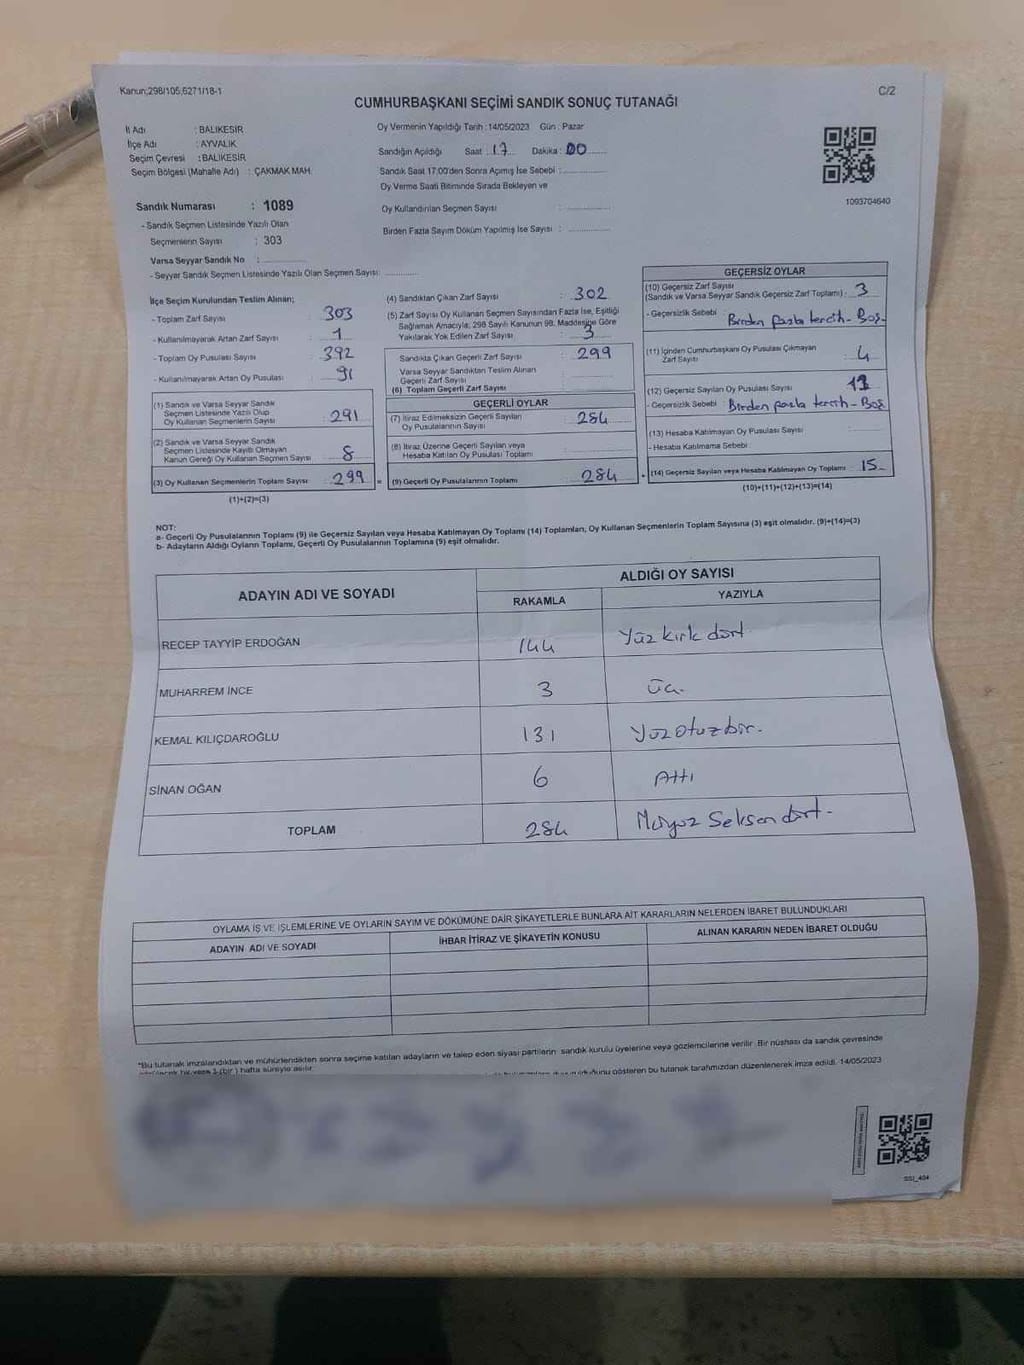 Kanun;298/105,6271/18-1
C/2
CUMHURBAŞKANI SEÇİMİ SANDIK SONUÇ TUTANAĞI
İl Adı : BALIKESİR
İlçe Adı : AYVALIK
Seçim Çevresi : BALIKESİR
Seçim Bölgesi (Mahalle Adı) : ÇAKMAK MAH.
Oy Vermenin Yapıldığı Tarih : 14/05/2023 Gün : Pazar
Sandığın Açıldığı Saat : 17 Dakika : 00
Sandık Saat 17:00'den Sonra Açımış İse Sebebi :
Oy Verme Saati Bitiminde Sırada Bekleyen ve
Oy Kullandırılan Seçmen Sayısı :
Birden Fazla Sayım Döküm Yapılmış İse Sayısı :
1093704640
Sandık Numarası : 1089
- Sandık Seçmen Listesinde Yazılı Olan
Seçmenlerin Sayısı : 303
Varsa Seyyar Sandık No :
- Seyyar Sandık Seçmen Listesinde Yazılı Olan Seçmen Sayısı:
İlçe Seçim Kurulundan Teslim Alınan;
- Toplam Zarf Sayısı : 303
- Kullanılmayarak Artan Zarf Sayısı : 1
- Toplam Oy Pusulası Sayısı : 392
- Kullanılmayarak Artan Oy Pusulası : 91
(1) Sandık ve Varsa Seyyar Sandık
Seçmen Listesinde Yazılı Olup
Oy Kullanan Seçmenlerin Sayısı : 291
(2) Sandık ve Varsa Seyyar Sandık
Seçmen Listesinde Kayıtlı Olmayan
Kanun Gereği Oy Kullanan Seçmen Sayısı : 8
(3) Oy Kullanan Seçmenlerin Toplam Sayısı : 299 =
(1)+(2)=(3)
(4) Sandıktan Çıkan Zarf Sayısı : 302
(5) Zarf Sayısı Oy Kullanan Seçmen Sayısından Fazla İse, Eşitliği
Sağlamak Amacıyla; 298 Sayılı Kanunun 98. Maddesine Göre
Yakılarak Yok Edilen Zarf Sayısı : 3
Sandıkta Çıkan Geçerli Zarf Sayısı : 299
Varsa Seyyar Sandıktan Teslim Alınan
Geçerli Zarf Sayısı :
(6) Toplam Geçerli Zarf Sayısı :
GEÇERLİ OYLAR
(7) İtiraz Edilmeksizin Geçerli Sayılan
Oy Pusulalarının Sayısı : 284
(8) İtiraz Üzerine Geçerli Sayılan veya
Hesaba Katılan Oy Pusulası Toplamı :
(9) Geçerli Oy Pusulalarının Toplamı : 284 +
GEÇERSİZ OYLAR
(10) Geçersiz Zarf Sayısı
(Sandık ve Varsa Seyyar Sandık Geçersiz Zarf Toplamı) : 3
- Geçersizlik Sebebi : Birden fazla tercih - Boş
(11) İçinden Cumhurbaşkanı Oy Pusulası Çıkmayan
Zarf Sayısı : 4
(12) Geçersiz Sayılan Oy Pusulası Sayısı :
- Geçersizlik Sebebi : Birden fazla tercih - Boş
(13) Hesaba Katılmayan Oy Pusulası Sayısı :
- Hesaba Katılmama Sebebi :
(14) Geçersiz Sayılan veya Hesaba Katılmayan Oy Toplamı : 15
(10)+(11)+(12)+(13)=(14)
NOT:
a- Geçerli Oy Pusulalarının Toplamı (9) ile Geçersiz Sayılan veya Hesaba Katılmayan Oy Toplamı (14) Toplamları, Oy Kullanan Seçmenlerin Toplam Sayısına (3) eşit olmalıdır. (9)+(14)=(3)
b- Adayların Aldığı Oyların Toplamı, Geçerli Oy Pusulalarının Toplamına (9) eşit olmalıdır.
ADAYIN ADI VE SOYADI
ALDIĞI OY SAYISI
RAKAMLA YAZIYLA
RECEP TAYYİP ERDOĞAN 144 Yüz kırk dört
MUHARREM İNCE 3 Üç.
KEMAL KILIÇDAROĞLU 131 Yüz otuz bir.
SİNAN OĞAN 6 Altı
TOPLAM 284 İkiyüz Seksen dört.
OYLAMA İŞ VE İŞLEMLERİNE VE OYLARIN SAYIM VE DÖKÜMÜNE DAİR ŞİKAYETLERLE BUNLARA AİT KARARLARIN NELERDEN İBARET BULUNDUKLARI
ADAYIN ADI VE SOYADI İHBAR İTİRAZ VE ŞİKAYETİN KONUSU ALINAN KARARIN NEDEN İBARET OLDUĞU
*Bu tutanak imzalandıktan ve mühürlendikten sonra seçime katılan adayların ve talep eden siyasi partilerin sandık kurulu üyelerine veya gözlemcilerine verilir. Bir nüshası da sandık çevresinde
(bir) hafta süreyle asılır.
gösteren bu tutanak tarafımızdan düzenlenerek imza edildi. 14/05/2023
SSI_404